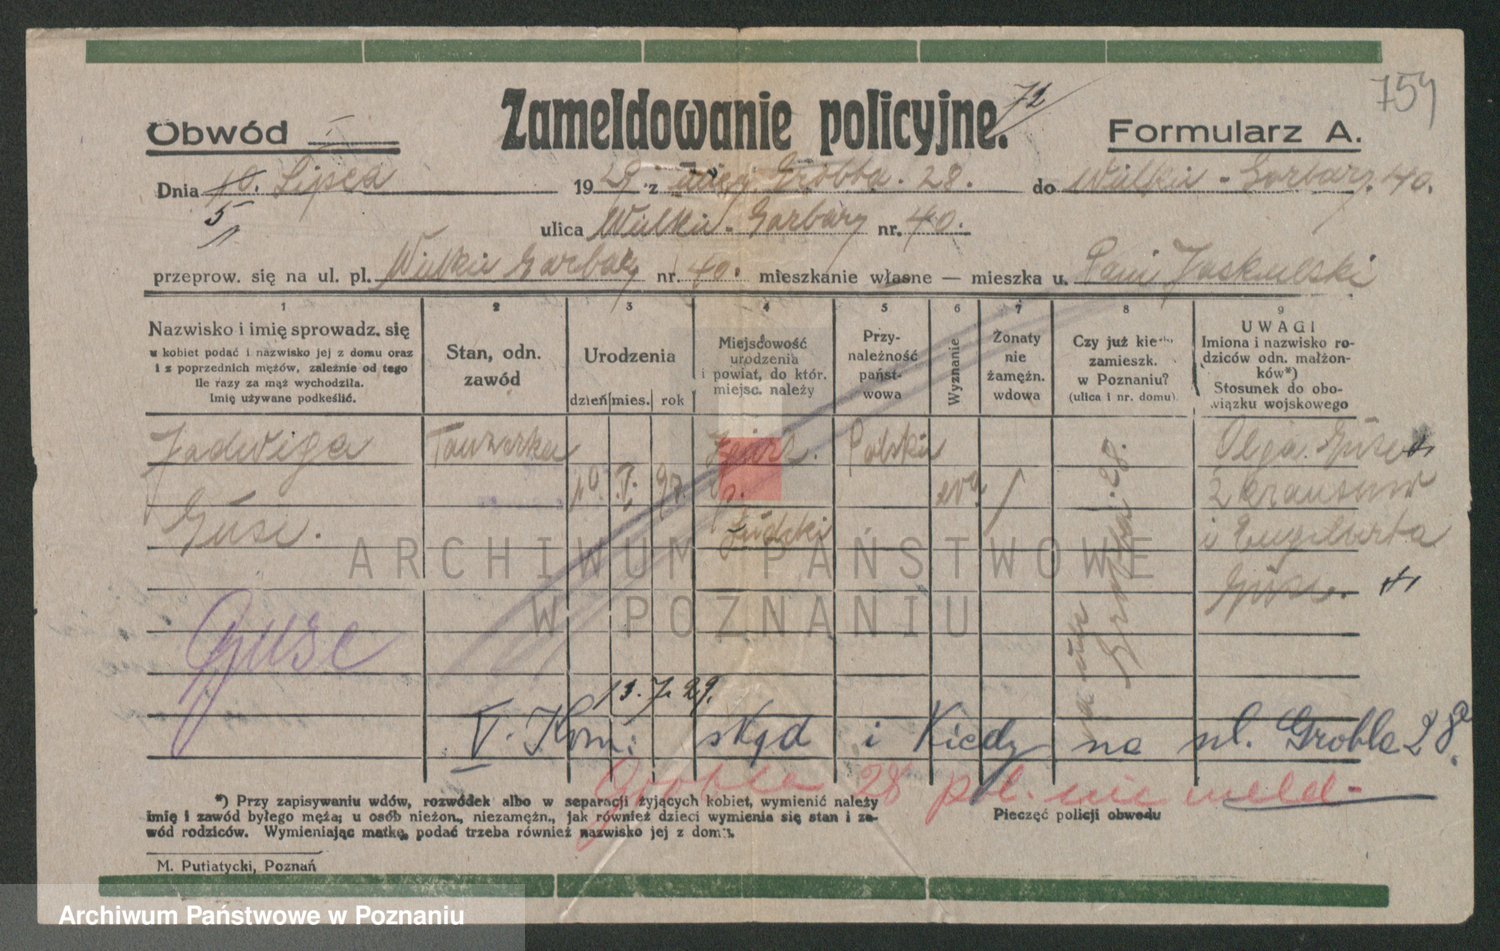 754
Zameldowanie policyjne.
72
Obwód I
Formularz A.
Dnia 10. Lipca 1929 z ulicy Grobla. 28. do Wielkie - Garbary. 40.
5
ulica Wielkie - Garbary nr. 40.
przeprow. się na ul. pl. Wielkie Garbary nr. 40. mieszkanie własne — mieszka u. Pani Jaskulski
1
Nazwisko i imię sprowadz. się
u kobiet podać i nazwisko jej z domu oraz
i z poprzednich mężów, zależnie od tego
ile razy za mąż wychodziła.
Imię używane podkeślić.
2
Stan, odn.
zawód
3
Urodzenia
dzień mies. rok
4
Miejscowość
urodzenia
i powiat, do któr.
miejsc. należy
5
Przy-
należność
państ-
wowa
6
Wyznanie
7
Żonaty
nie
żamężn.
wdowa
8
Czy już kie
zamieszk.
w Poznaniu?
(ulica i nr. domu)
9
UWAGI
Imiona i nazwisko ro-
dziców odn. małżon-
ków*)
Stosunek do obo-
wiązku wojskowego
Jadwiga
Guse.
10. I.
Zgierz.
p.
Łódzki
Polska
ewg.
Grobla 28.
Olga Guse
z
i Engelberta
Guse.
Guse
13.7.29.
V. Kom: skąd i Kiedy na ul. Grobla 28a
Grobla 28 pol. nie meld.
*) Przy zapisywaniu wdów, rozwódek albo w separacji żyjących kobiet, wymienić należy
imię i zawód byłego męża; u osób nieżon., niezamężn., jak również dzieci wymienia się stan i za-
wód rodziców. Wymieniając matkę, podać trzeba również nazwisko jej z domu.
Pieczęć policji obwodu
M. Putiatycki, Poznań
ARCHIWUM PAŃSTWOWE
W POZNANIU
Archiwum Państwowe w Poznaniu